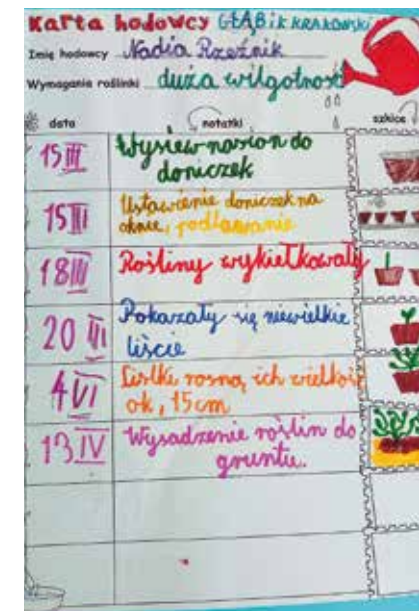 Karta hodowcy GŁĄBiK KRAKOWSKI
Imię hodowcy Nadia Rzeźnik
Wymagania roślinki duża wilgotność
data notatki szkice
15 III Wysiew nasion do
doniczek
15 III Ustawienie doniczek na
oknie, podlewanie
18 III Rośliny wykiełkowały
20 III Pokazały się niewielkie
liście
4 VI Listki rosną, ich wielkość
ok, 15cm
13 IV Wysadzenie roślin do
gruntu.